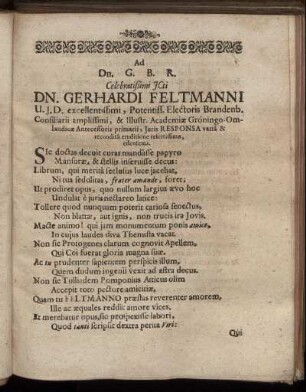 Ad
Dn. G. B. R.
Celebratissimi JCti
DN. GERHARDI FELTMANNI
U. J. D. excellentissimi, Potentiss. Electoris Brandenb.
Consiliarii amplissimi, & Illustr. Academiæ Gröningo-Om-
landicæ Antecessoris primarii, Juris RESPONSA varia &
recondita eruditione refertissima,
edentem.
Sic doctas decuit curas mandasse papyro
Mansuræ, & stellis inseruisse decus:
Librum, qui meritâ seclusus luce jacebat,
Ni tua sedulitas, frater amande, foret;
Ut prodiret opus, quo nullum largius ævo hoc
Undulat è juris nectareo latice:
Tollere quod nunquam poterit cariosa senectus,
Non blattæ, aut ignis, non trucis ira Jovis.
Macte animo! qui jam monumentum ponis amico,
In cujus laudes diva Themusta vacat.
Non sic Protogenes clarum cognovit Apellem,
Qui Coi fuerat gloria magna suæ.
Ac tu prudenter sapientem perspicis illum,
Quem dudum ingenii vexit ad astra decus.
Non sic Tulliadem Pomponius Atticus olim
Accepit toto pectore amicitiæ,
Quam tu FELTMANNO præstas reverenter amorem,
Ille ac æquales reddit amore vices.
Et merebatur opus, sic prospexisse labori,
Quod tanti scripsit dextra perita Viri:
Qui